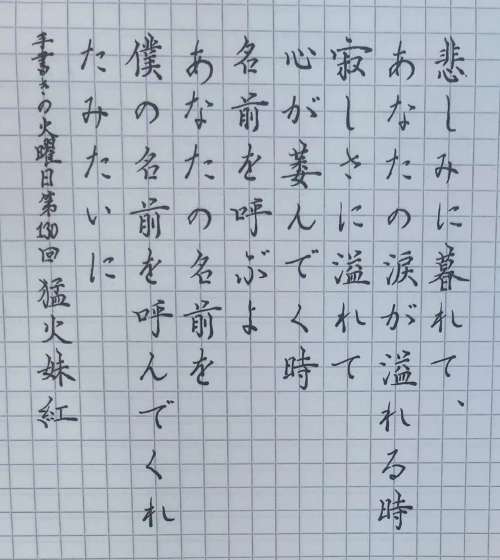 悲しみに暮れて、
あなたの涙が溢れる時
寂しさに溢れて
心が萎んでく時
名前を呼ぶよ
あなたの名前を
僕の名前を呼んでくれ
たみたいに
手書きの火曜日第130回 猛火妹紅